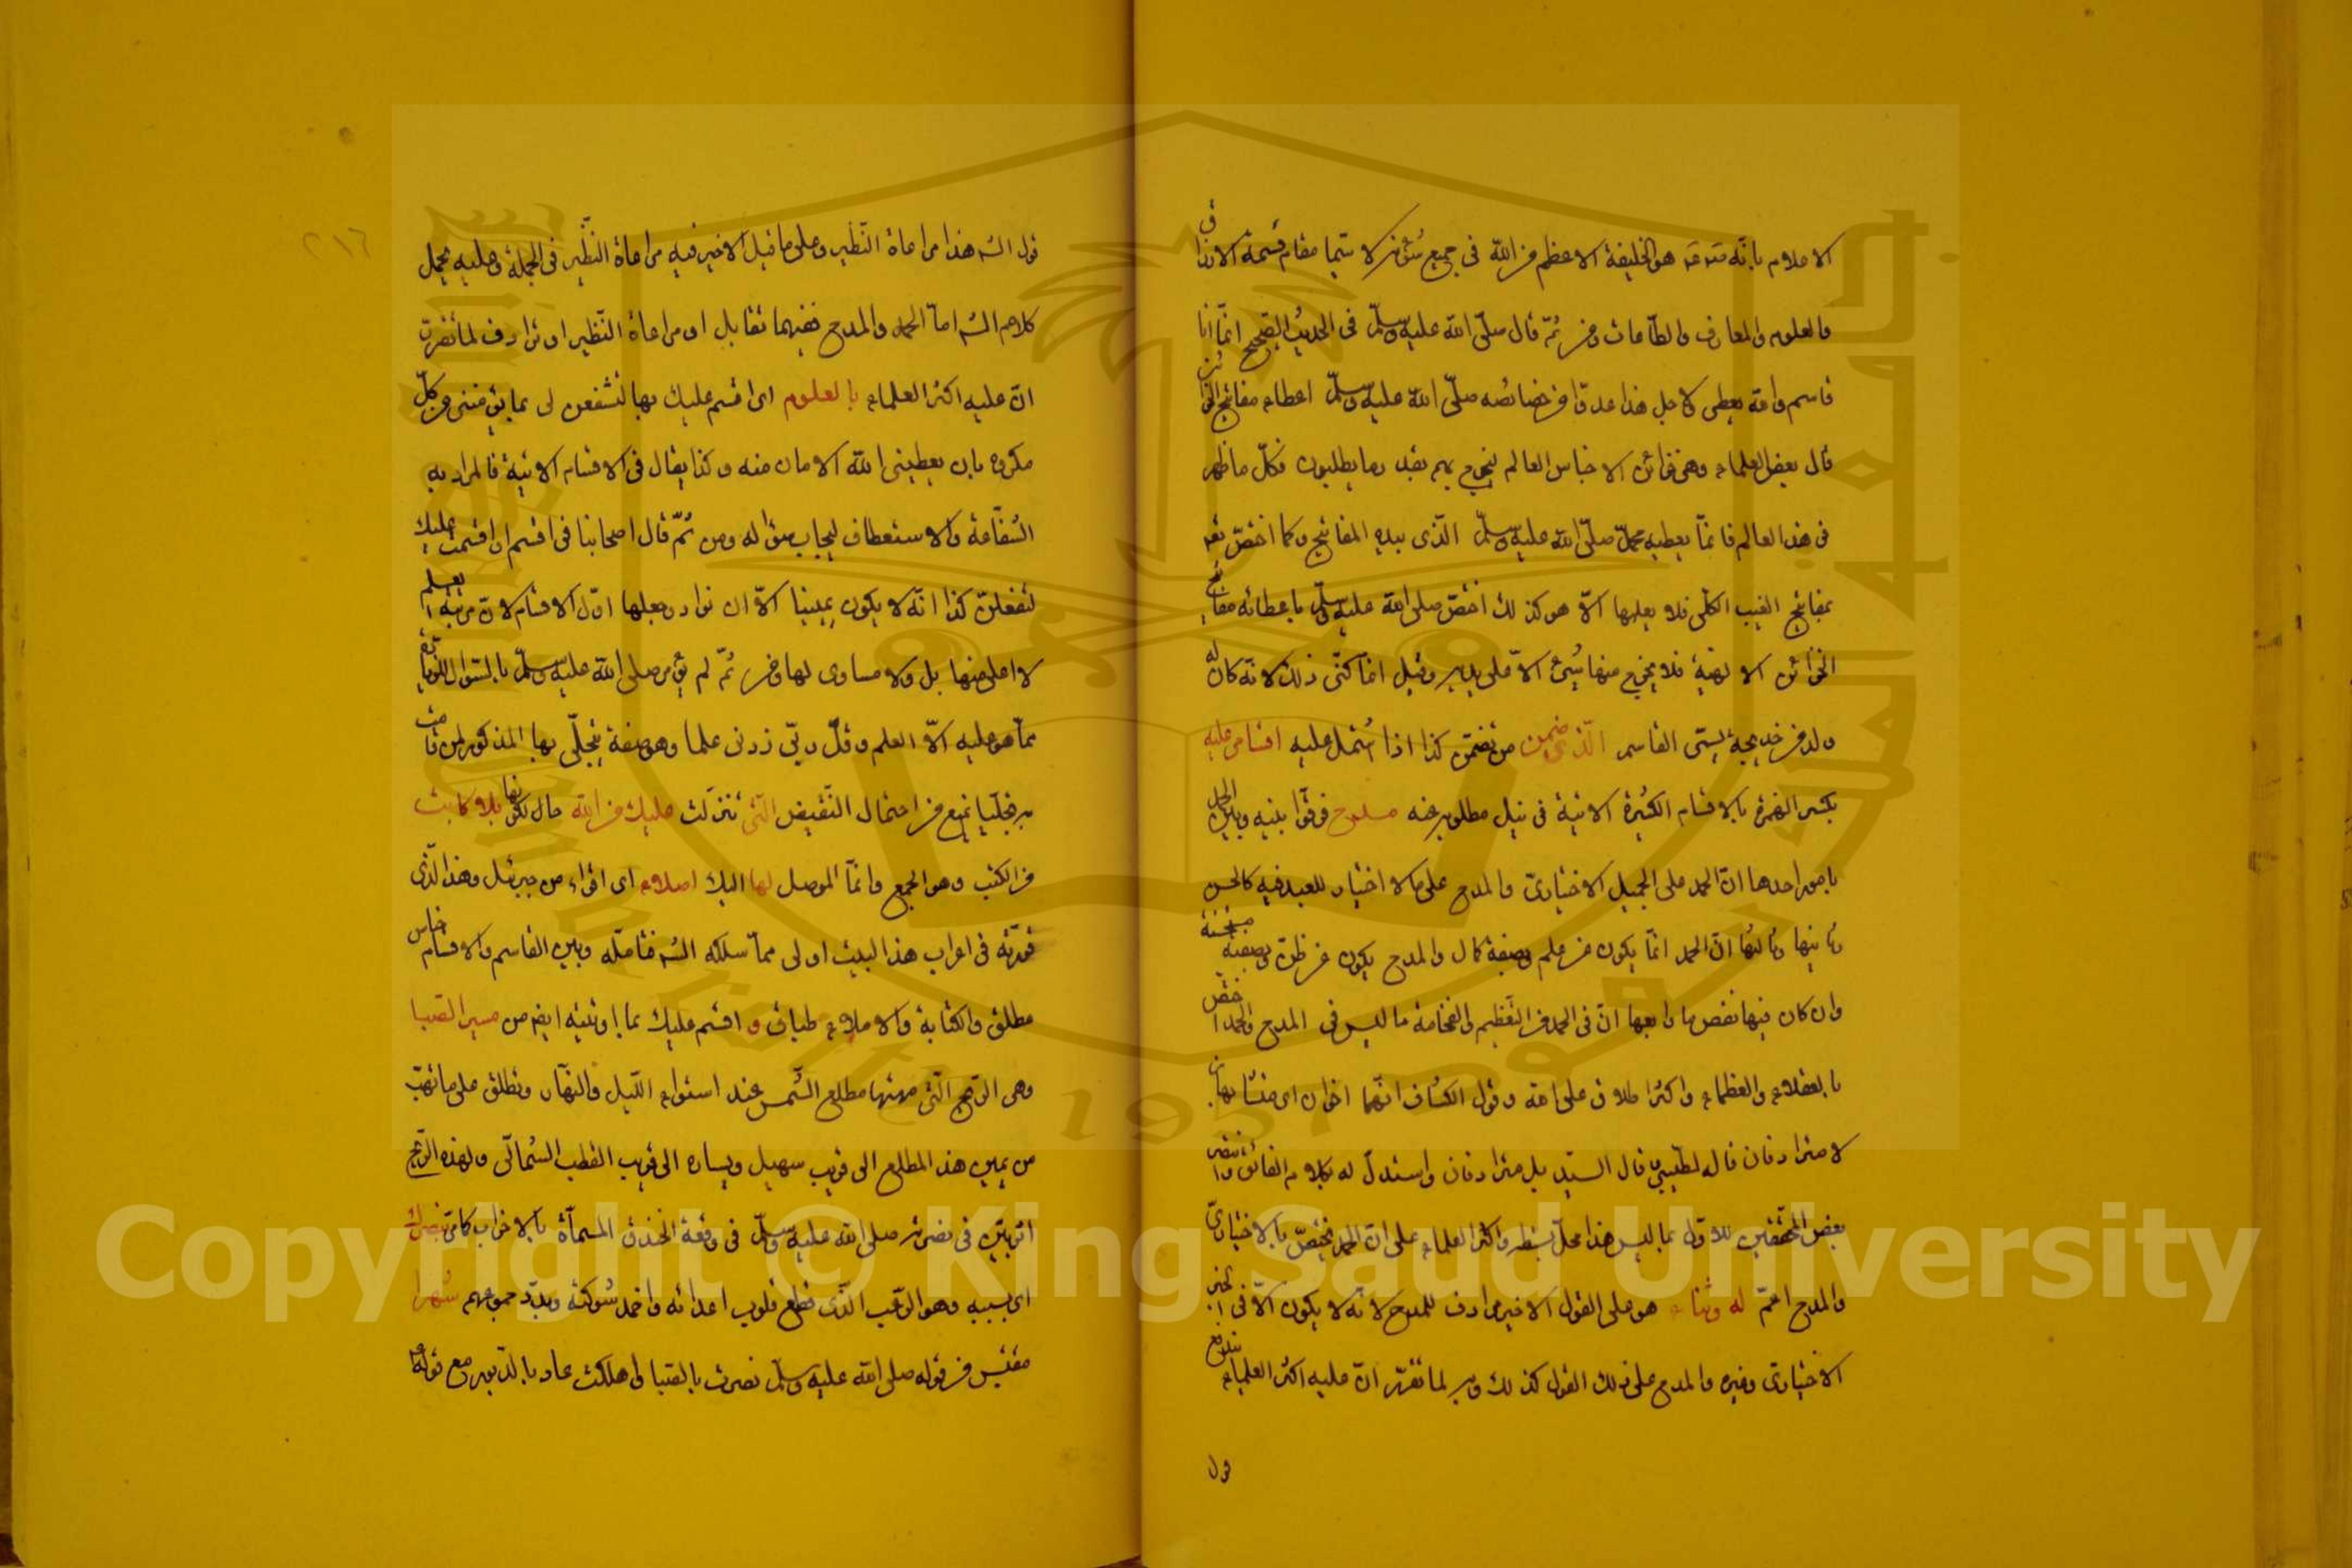 الاعلام بأنه هو الخليفة الاعظم من الله فى جميع شؤنه لا سيما مقام قسمة الارزاق
والعلوم والمعارف والطاعات ومن ثم قال صلى الله عليه وسلم فى الحديث الصحيح انما انا
قاسم والله يعطى ولاجل هذا عدوا من خصائصه صلى الله عليه وسلم اعطاء مفاتيح الخزائن
قال بعض العلماء وهى خزائن الاجناس العالم ليخرج بهم بقدر ما يطلبون فكل ما ظهر
فى هذا العالم فانما يعطيه محمد صلى الله عليه وسلم الذى بيده المفاتيح وكما اختص تع
بمفاتيح الغيب الكلى فلا يعلمها الا هو كذلك اختص صلى الله عليه وسلم باعطائه مفاتيح
الخزائن الالهية فلا يخرج منها شئ الا على يديه وقيل انما كنى ذلك لانه كان له
ولد من خديجة يسمى القاسم الذى ضمن من تضمن كذا اذا اشتمل عليه اقسامى عليه
بكسر الهمزة بالاقسام الكثيرة الاتية فى نيل مطلوبه عنه مدح فرقوا بينه وبين الحمد
بامور احدها ان الحمد على الجميل الاختيارى والمدح على ما لا اختيار للعبد فيه كالحسن
وثانيها وثالثها ان الحمد انما يكون عن علم وبصفة كمال والمدح يكون عن ظن وبصفة مستحسنة
وان كان فيها نقص ما ورابعها ان فى الحمد من التعظيم والفخامة ما ليس فى المدح والحمد اخص
بالعقلاء والعظماء واكثر اطلاق على الله وقول الكشاف انهما اخوان اى متشابهان
لا مترادفان قاله الطيبى وقال السيد بل مترادفان واستدل له بكلام الفائق وانتصر
بعض المحققين للاول بما ليس هذا محل بسطه واكثر العلماء على ان الحمد مختص بالاختيارى
والمدح اعم له وثناء هو على القول الاخير مرادف للمدح لانه لا يكون الا فى الخير
الاختيارى وغيره والمدح على ذلك القول كذلك وبه لما تقرر ان عليه اكثر العلماء يندفع
قول
قول الش هذا مراعاة النظير وعلى ما قيل الاخير فيه مراعاة النظير فى الجملة وعليه يحمل
كلام الش اما الحمد والمدح ففيهما تقابل او مراعاة النظير او ترادف لما تقرر
ان عليه اكثر العلماء بالعلوم اى اقسم عليك بها لتشفعن لى بما ينقذنى من كل
مكروه بان يعطينى الله الامان منه وكذا يقال فى الاقسام الاتية فالمراد به
الشفاعة والاستعطاف ليجاب سؤاله ومن ثم قال اصحابنا فى اقسم او اقسمت عليك
لتفعلن كذا انه لا يكون يمينا الا ان نواه وجعلها اول الاقسام لان مرتبة العلم
لا اعلى منها بل ولا مساوى لها ومن ثم لم يؤمر صلى الله عليه وسلم بالسؤال للترقى
مما هو عليه الا العلم وقل رب زدنى علما وهو صفة يتجلى بها المذكور لمن قامت
به تجليا يمنع من احتمال النقيض التى تنزلت عليك من الله حال كونها بلا كاتب
من الكتب وهو الجمع وانما الموصل لها اليك املاء اى اقراء من جبرئيل وهذا الذى
قدرته فى اعراب هذا البيت اولى مما سلكه الش فتامله وبين القاسم والاقسام جناس
مطلق والكتابة والاملاء طباق و اقسم عليك بما اوتيته ايضا من مسير الصبا
وهى الريح التى مهبها مطلع الشمس عند استواء الليل والنهار وتطلق على ما تهب
من يمين هذا المطلع الى قريب سهيل ويساره الى قريب القطب الشمالى ولهذه الريح
اثر بين فى نصرته صلى الله عليه وسلم فى وقعة الخندق المسماة بالاحزاب كما مر بنصرك
اى بسببه وهو الرعب الذى قطع قلوب اعدائه واخمد شوكته وبدد جموعهم شهرا
مقتبس من قوله صلى الله عليه وسلم نصرت بالصبا واهلكت عاد بالدبور مع قوله